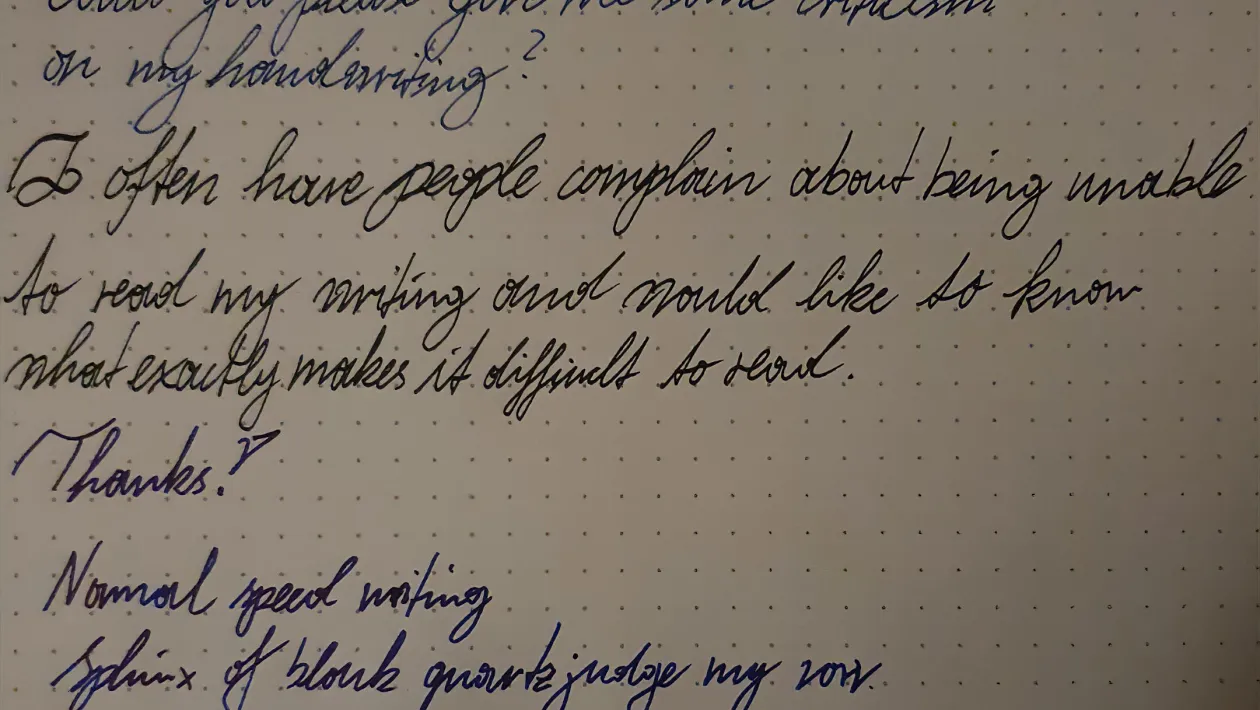 Could you please give me some criticism
on my handwriting?
I often have people complain about being unable
to read my writing and would like to know
what exactly makes it difficult to read.
Thanks!
Normal speed writing
Sphinx of black quartz judge my vow.